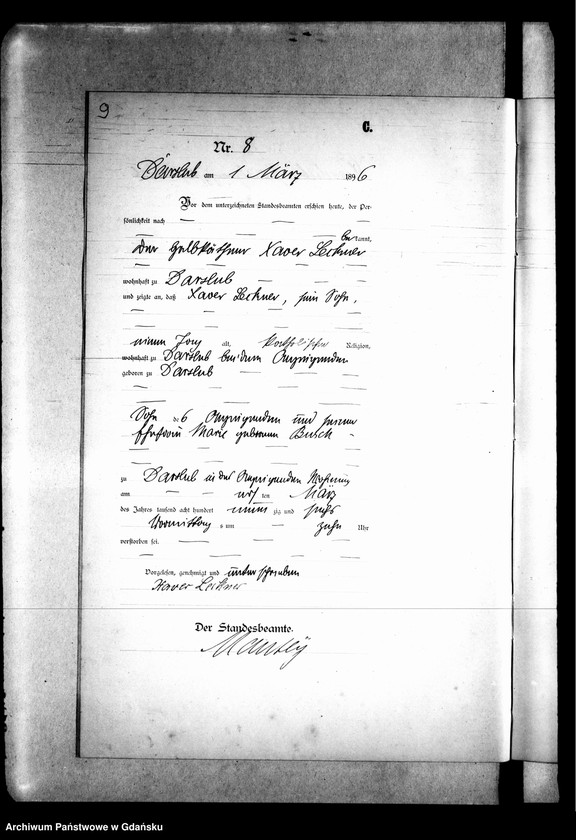 9
C.
Nr. 8
Darslub am 1 März 1896
Vor dem unterzeichneten Standesbeamten erschien heute, der Per-
sönlichkeit nach
bekannt,
der Halbkäthner Xaver Leckner
wohnhaft zu Darslub
und zeigte an, daß Xaver Leckner, sein Sohn,
einen Tag alt, katholischer Religion,
wohnhaft zu Darslub bei dem Anzeigenden
geboren zu Darslub
Sohn des Anzeigenden und seiner
Ehefrau Marie geborenen Busch
zu Darslub in des Anzeigenden Wohnung
am ersten März
des Jahres tausend acht hundert neunzig und sechs
Vormittags um zehn Uhr
verstorben sei.
Vorgelesen, genehmigt und unterschrieben
Xaver Leckner
Der Standesbeamte.
Archiwum Państwowe w Gdańsku